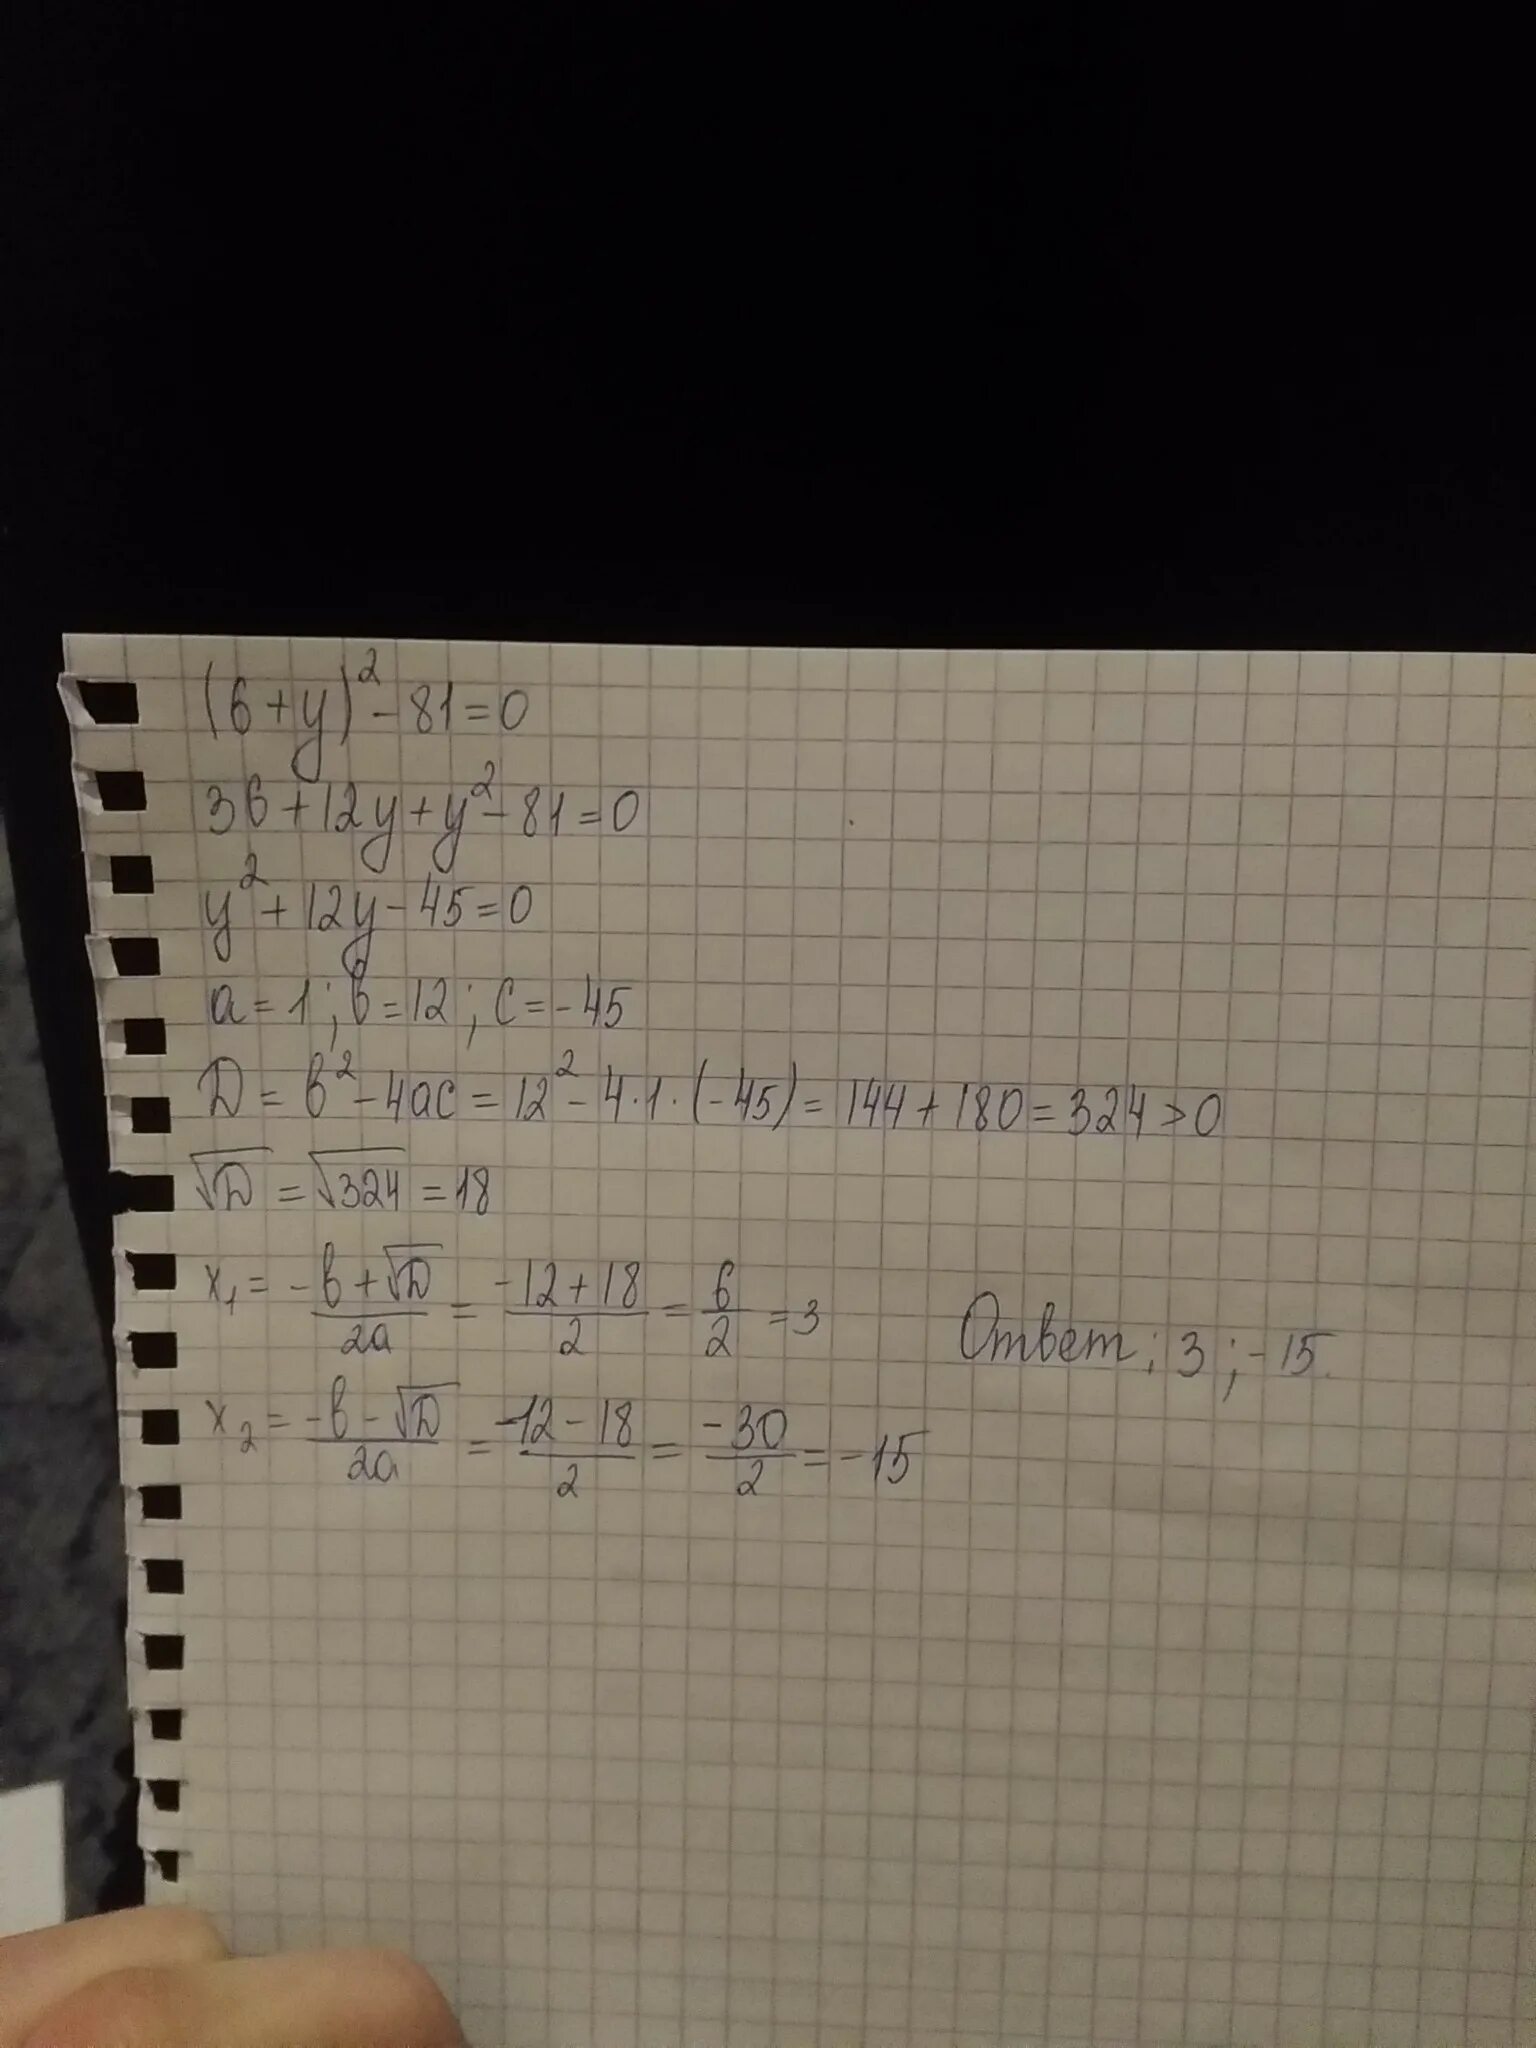 (6+y)²-81=0
36+12y+y²-81=0
y²+12y-45=0
a=1; b=12; c=-45
D=b²-4ac=12²-4·1·(-45)=144+180=324>0
√D=√324=18
x₁=-b+√D/2a=-12+18/2=6/2=3
Ответ: 3; -15.
x₂=-b-√D/2a=-12-18/2=-30/2=-15